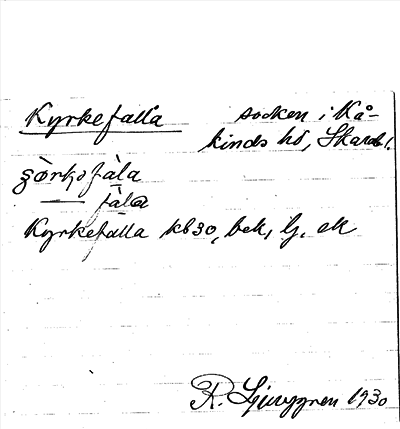 Kyrkefalla
socken i Kå-
kinds hd, Skarab.
şòrkofàla
— fàla
Kyrkefalla kb30, bek, lj. ek
R. Ljunggren 1930